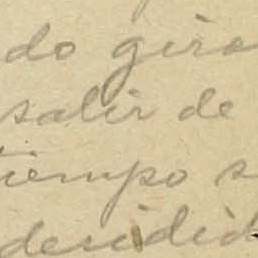 do gira
salir de
tiempo s
decidid